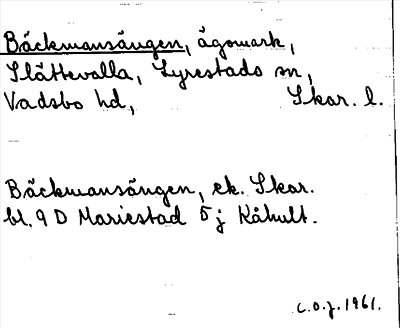 Bäckmansängen, ägomark,
Slättevalla, Lyrestads sn,
Vadsbo hd, Skar. l.
Bäckmansängen, ek. Skar.
bl. 9 D Mariestad 5 j Kåhult.
C.O.J. 1961.